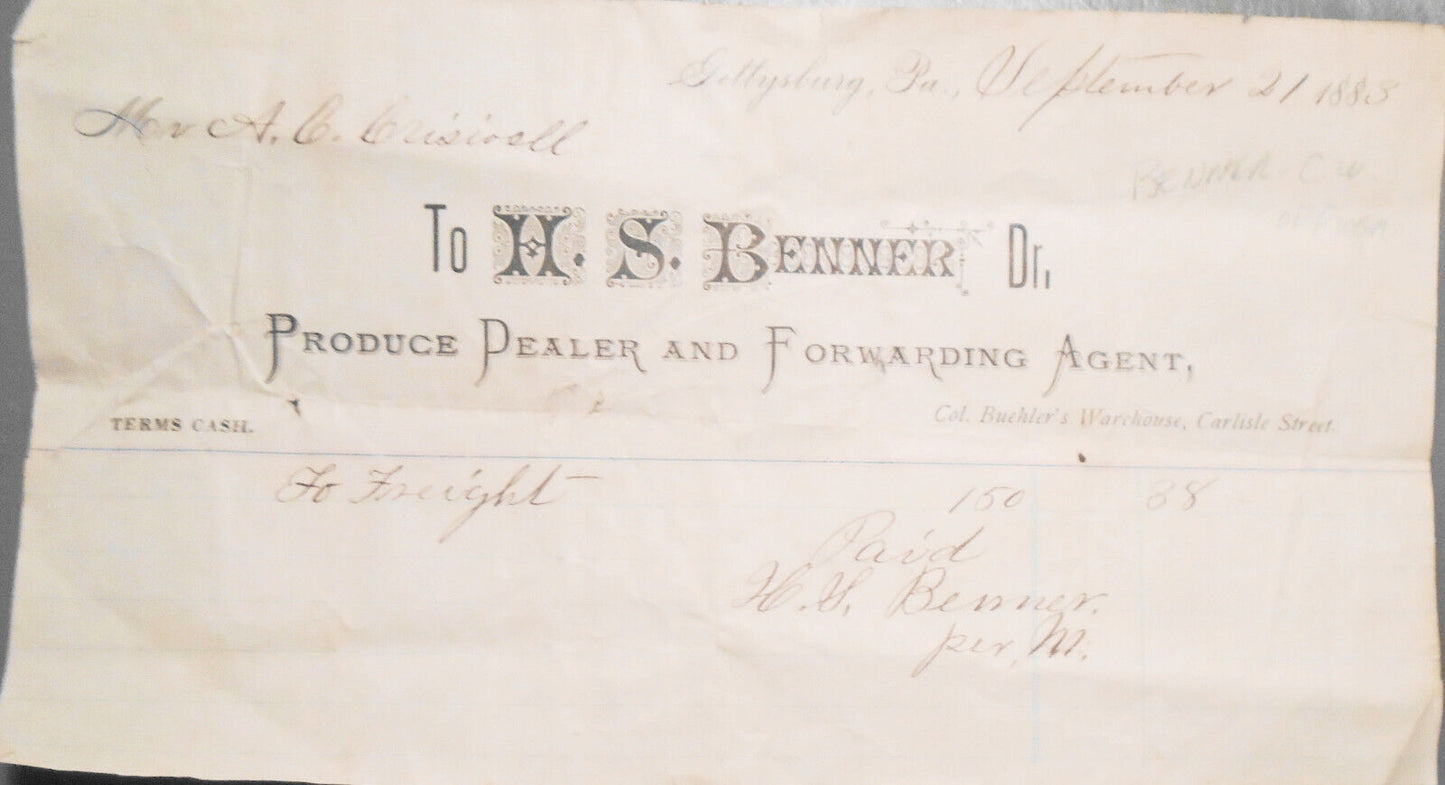 Gettysburg, Pa., September 21 1883
Mr A. C. Criswell
BENNER - C W
To H. S. BENNER Dr.,
PRODUCE DEALER AND FORWARDING AGENT,
TERMS CASH.
Col. Buehler's Warehouse, Carlisle Street.
To Freight 150 38
Paid
H. S. Benner.
per, M.